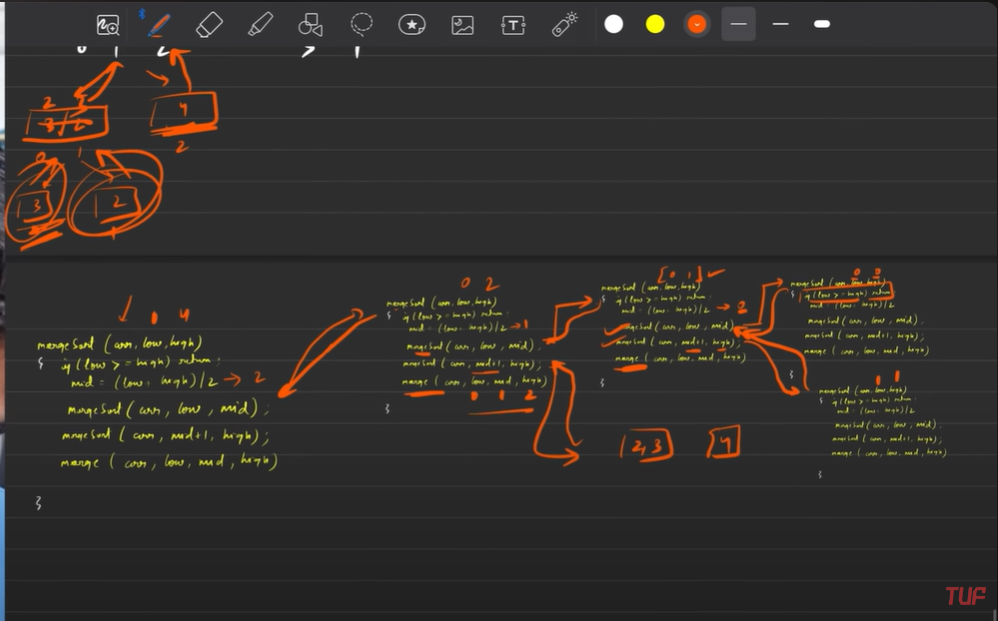 0 1 2 3 4
2 3
4
2
0 1
3
2
0 4
mergeSort (arr, low, high)
{ if (low >= high) return;
mid = (low + high)/2 → 2
mergeSort (arr, low, mid);
mergeSort (arr, mid+1, high);
merge (arr, low, mid, high)
}
0 2
mergeSort (arr, low, high)
{ if (low >= high) return;
mid = (low + high)/2 → 1
mergeSort (arr, low, mid);
mergeSort (arr, mid+1, high);
merge (arr, low, mid, high)
0 1 2
}
2,3 4
[0 1] ✓
mergeSort (arr, low, high)
{ if (low >= high) return;
mid = (low + high)/2 →
mergeSort (arr, low, mid);
mergeSort (arr, mid+1, high);
merge (arr, low, mid, high)
}
0 0
mergeSort (arr, low, high)
{ if (low >= high) return;
mid = (low + high)/2
mergeSort (arr, low, mid);
mergeSort (arr, mid+1, high);
merge (arr, low, mid, high)
}
1 1
mergeSort (arr, low, high)
{ if (low >= high) return;
mid = (low + high)/2
mergeSort (arr, low, mid);
mergeSort (arr, mid+1, high);
merge (arr, low, mid, high)
}
TUF